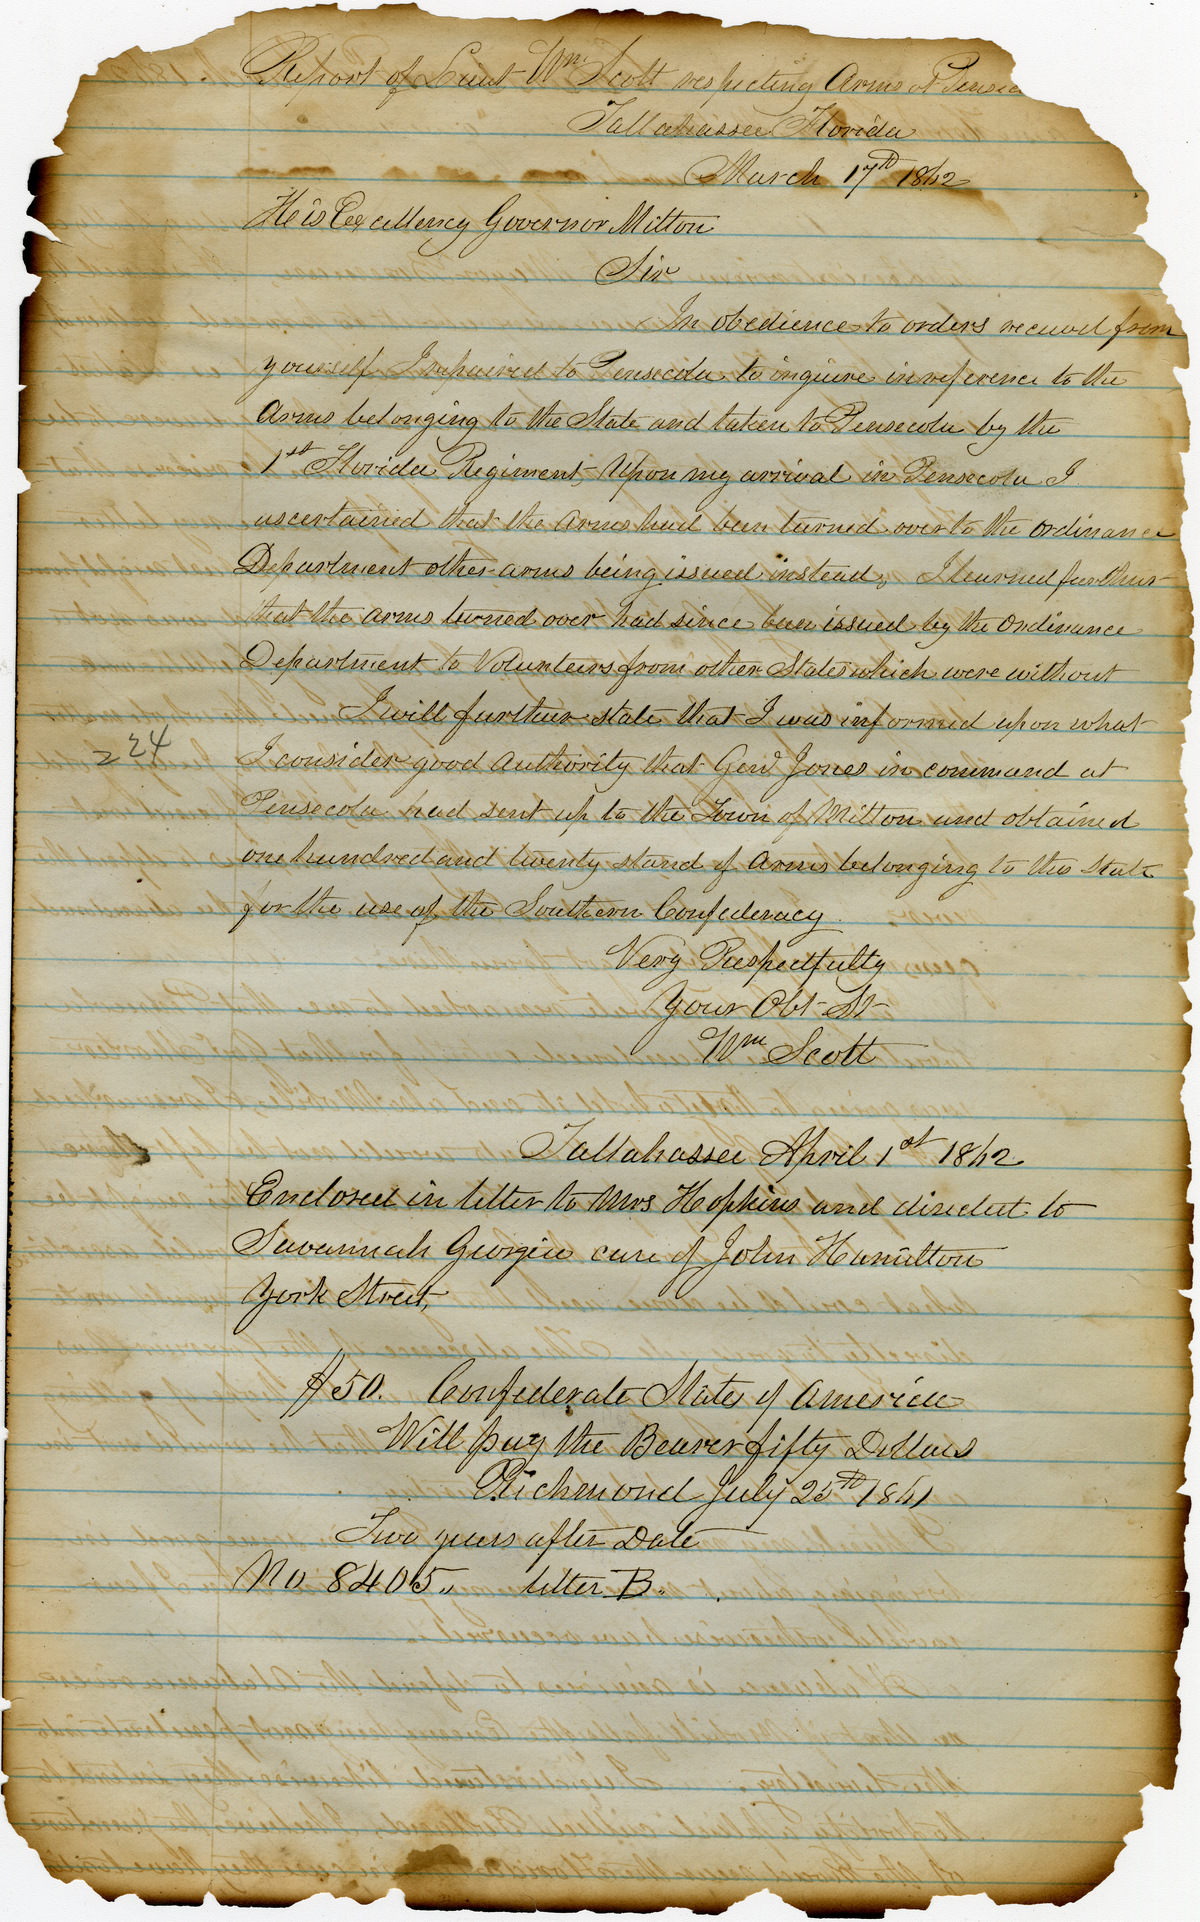 Report of Lieut Wm Scott respecting Arms at Pensa
Tallahassee Florida
March 17th 1862
His Excellency Governor Milton
Sir
In obedience to orders received from
yourself I repaired to Pensecola to inquire in reference to the
Arms belonging to the State and taken to Pensecola by the
1st Florida Regiment, Upon my arrival in Pensecola I
ascertained that the Arms had been turned over to the Ordinance
Department other arms being issued instead, I learned further
that the arms turned over had since been issued by the Ordinance
Department to Volunteers from other States which were without
I will further state that I was informed upon what
224
I consider good Authority that Genl Jones in command at
Pensecola had sent up to the Town of Milton and obtained
one hundred and twenty stand of Arms belonging to this State
for the use of the Southern Confederacy.
Very Respectfully
Your Obt St
Wm Scott
Tallahassee April 1st 1862
Enclosed in letter to Mrs Hopkins and directed to
Savannah Georgia care of John Hamilton
York Street,
$50. Confederate States of America
Will pay the Bearer fifty Dollars
Richmond July 25th 1861
Two years after Date
No 8405., letter B.